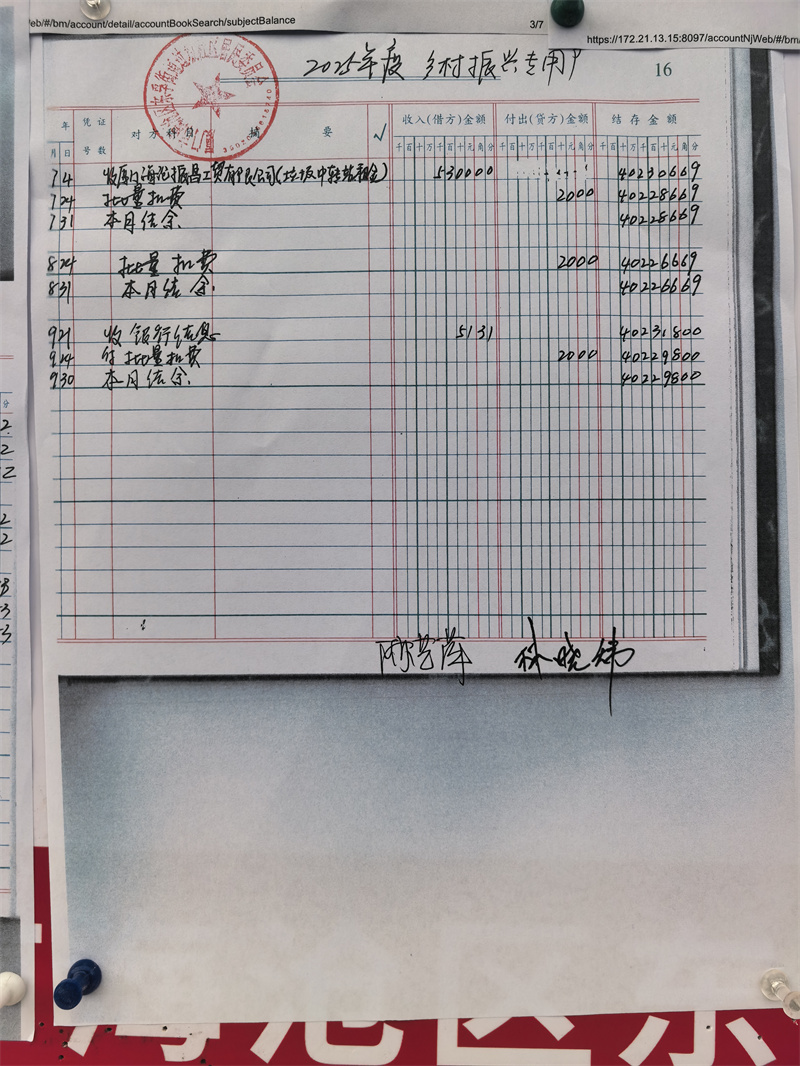 Web/#/bm/account/detail/accountBookSearch/subjectBalance
3/7
https://172.21.13.15:8097/accountNjWeb/#/bm/
2025年度 乡村振兴专用户
16
年 凭证 对方科目 摘要 √ 收入(借方)金额 付出(贷方)金额 结存金额
月 日 号数 千百十万千百十元角分 千百十万千百十元角分 千百十万千百十元角分
7 4 收厦门海沧振昌工贸有限公司(垃圾中转站租金) 530000 40230669
7 24 批量扣费 2000 40228669
7 31 本月结余. 40228669
8 24 批量扣费 2000 40226669
8 31 本月结余. 40226669
9 21 收银行结息 5131 40231800
9 24 付批量扣费 2000 40229800
9 30 本月结余. 40229800
林晓炜
海沧区东